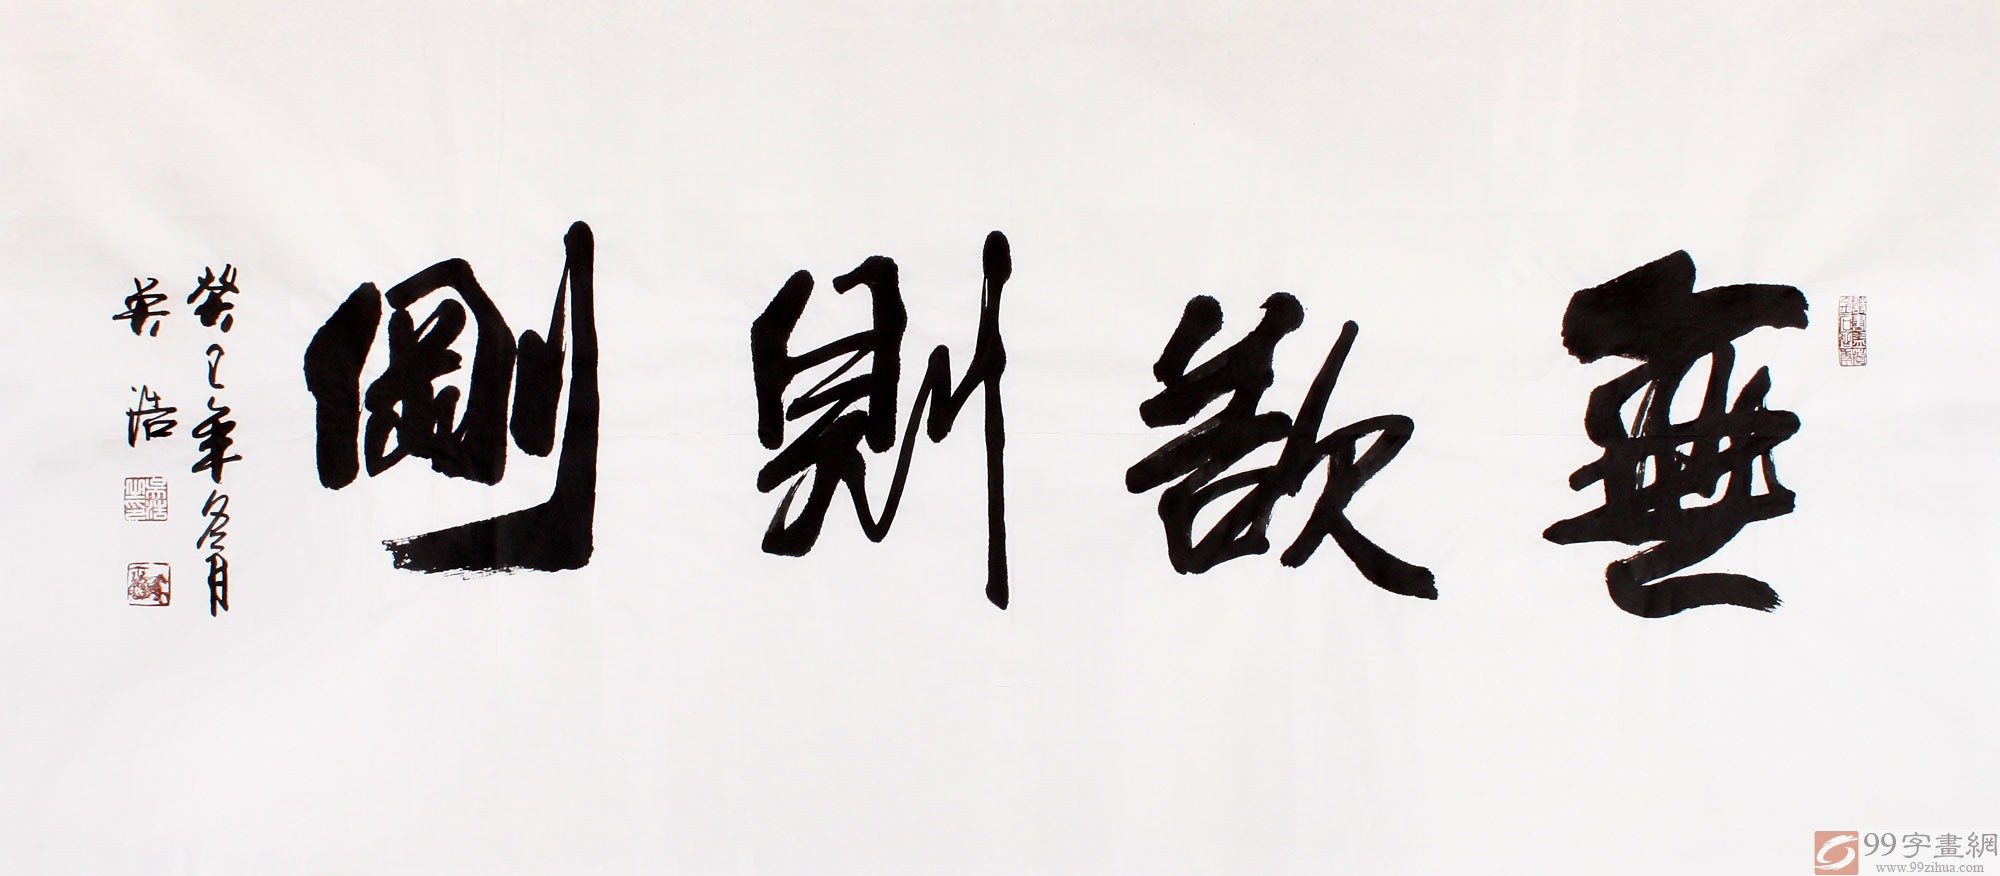 無欲則剛
癸巳年冬月
吴浩
99字畫網
www.99zihua.com